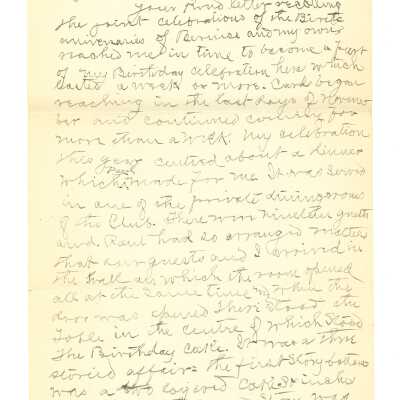 Your kind letter recalling
the joint celebrations of the Birth
aniversaries of Bernice and my own
reached me in time to become a part
of my Birthday celebration here which
lasted a week or more. Cards began
reaching in the last days of Novem
ber and continued coming for
more than a week. My celebration
this year centred about a dinner
which Paul made for me. It was served
in one of the private dining rooms
of the Club. There were nineteen guests
and Paul had so arranged matters
that our guests and I arrived in
the hall on which the room opened
all at the same time & when the
door was opened there stood the
Table in the centre of which stood
The Birthday Cake. It was a three
storied affair - the first story bottom
was a two layered Cake
was